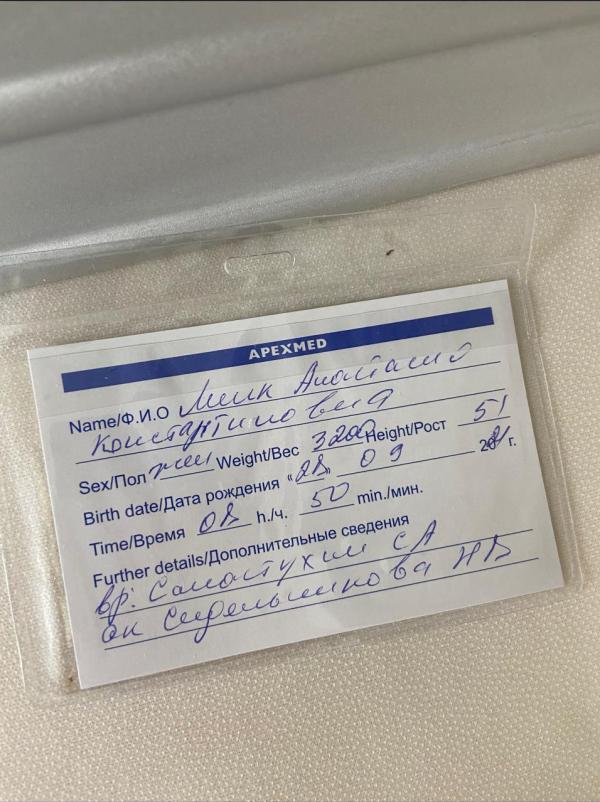 APEXMED
Name/Ф.И.О Минк Анастасия
Константиновна
Sex/Пол жен Weight/Вес 3200 Height/Рост 51
Birth date/Дата рождения "28" 09 2021 г.
Time/Время 08 h./ч. 50 min./мин.
Further details/Дополнительные сведения
вр: СА
ак Сидельникова НВ